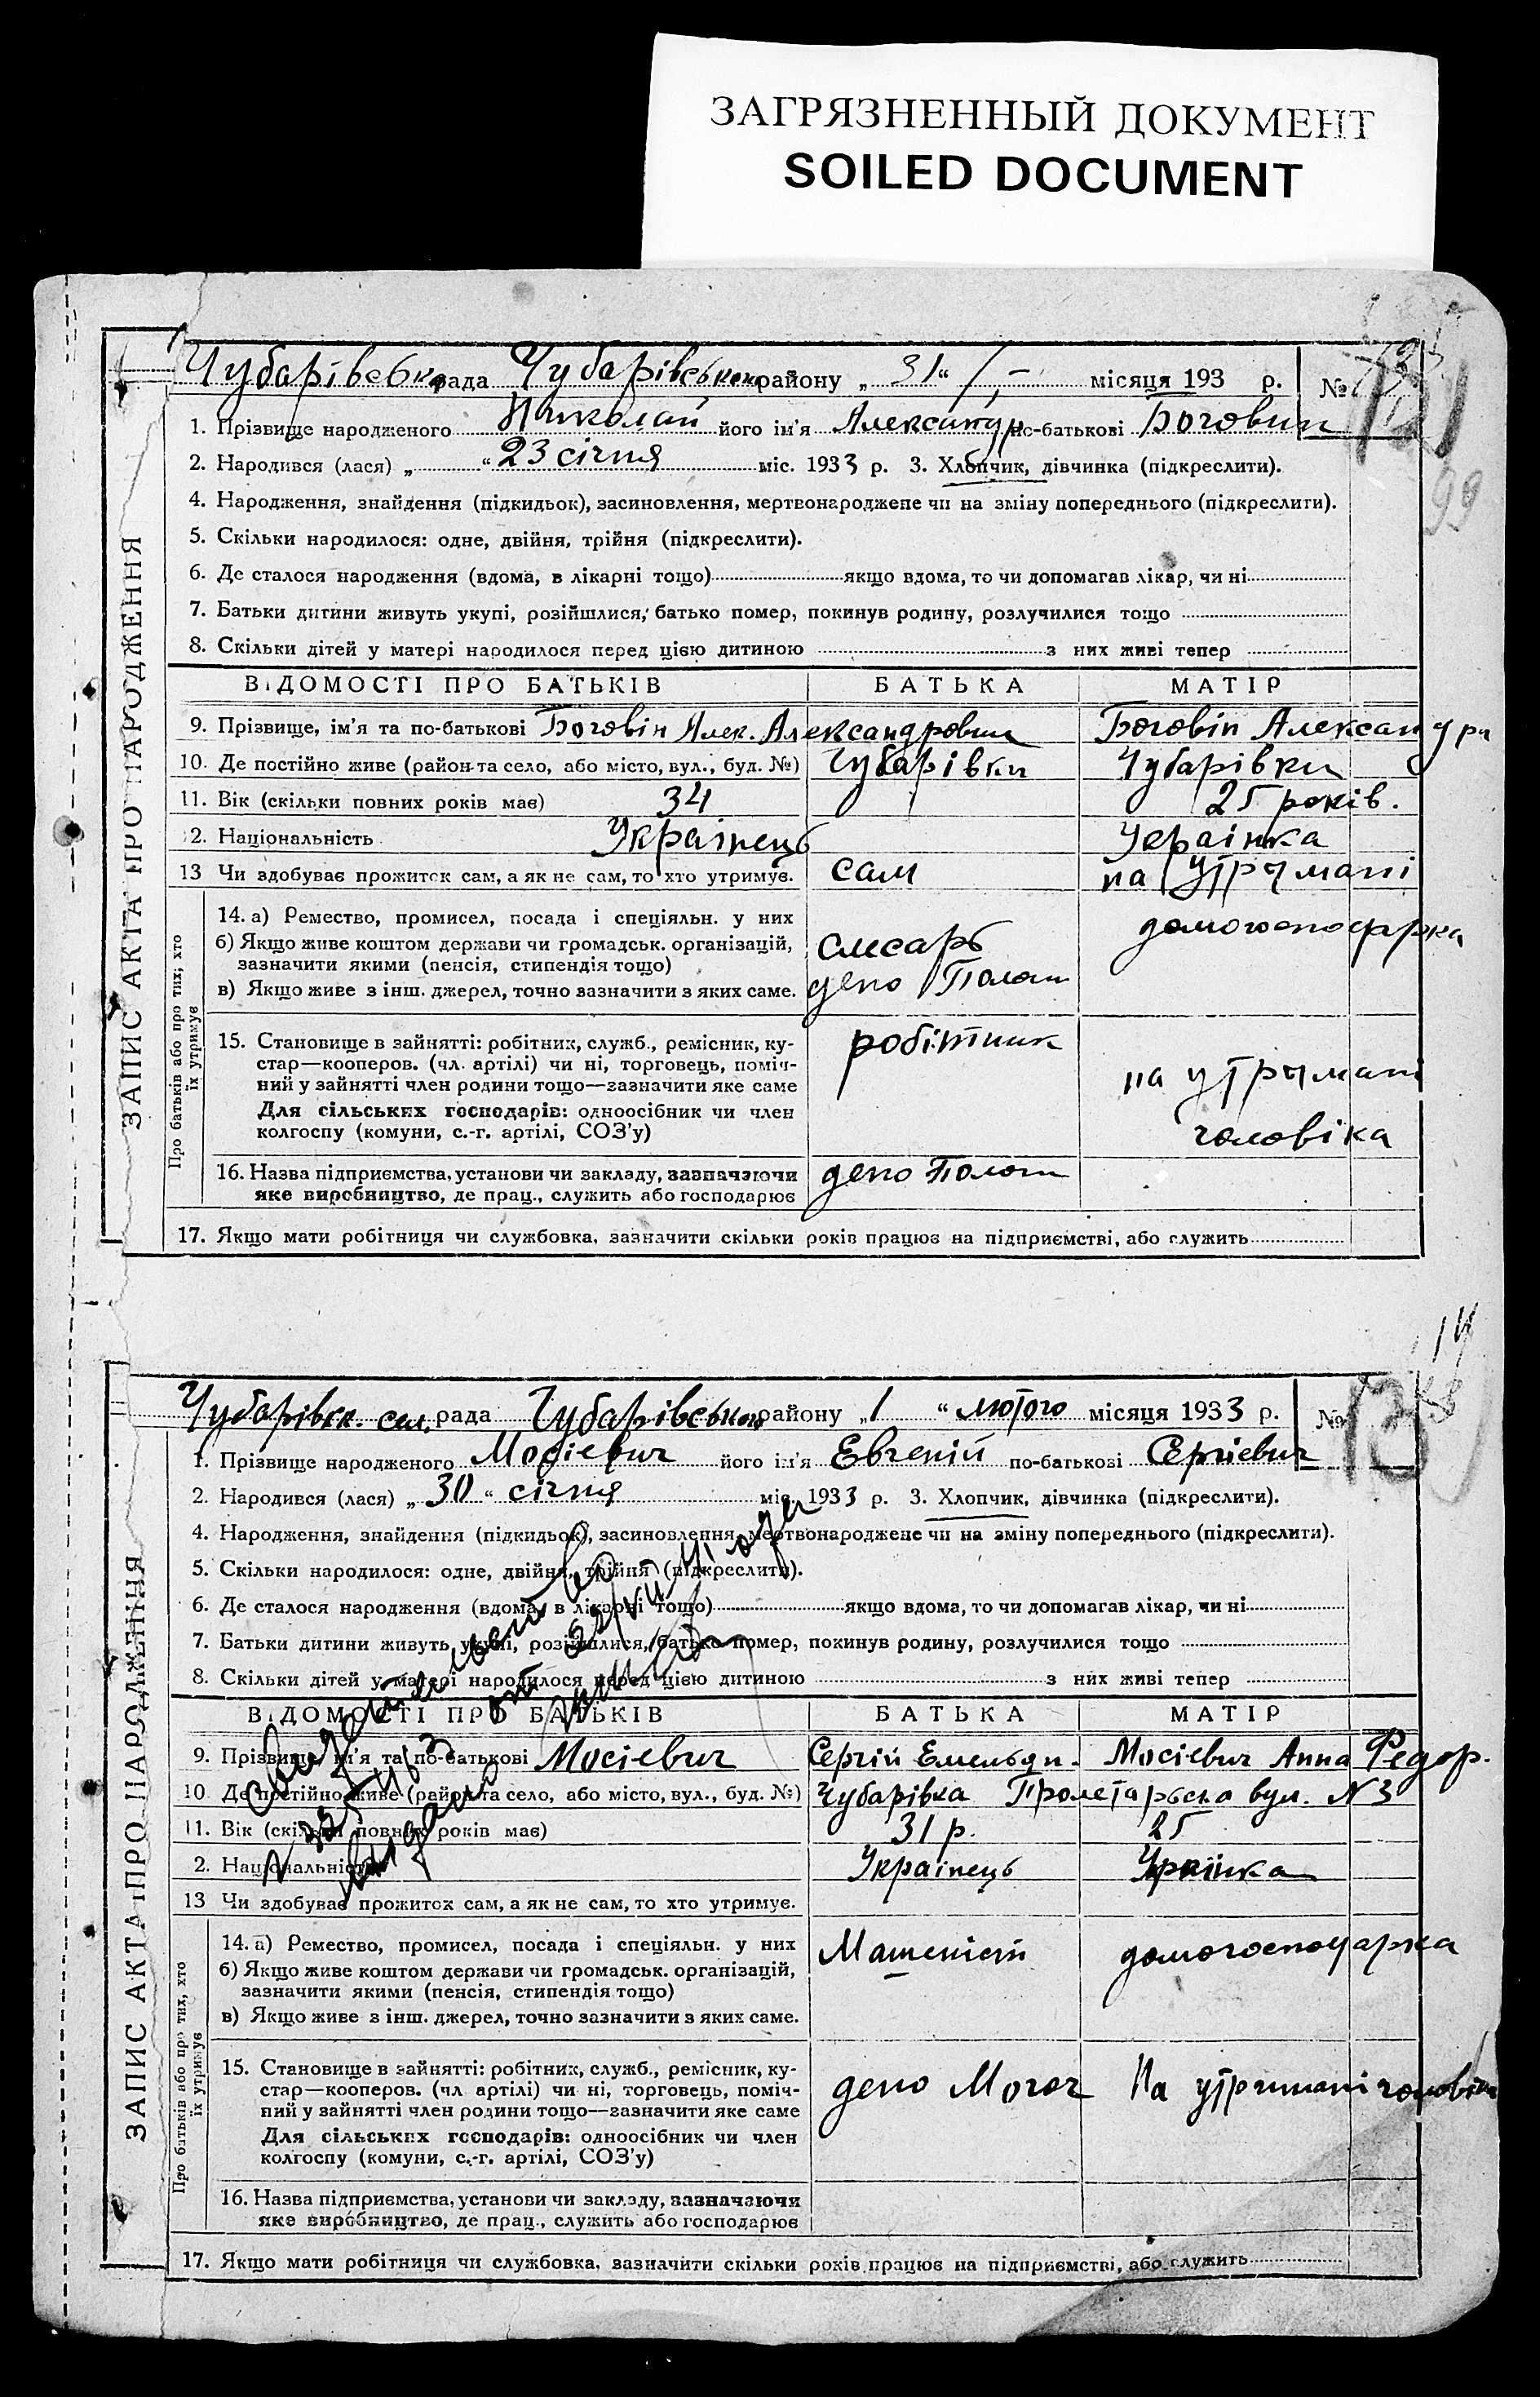 ЗАГРЯЗНЕННЫЙ ДОКУМЕНТ
SOILED DOCUMENT
ЗАПИС АКТА ПРО НАРОДЖЕННЯ
Чубарівська рада Чубарівського району „ 31 “ /1 – місяця 193 р. №
1. Прізвище народженого Николай його ім'я Александр по-батькові Боговин
2. Народився (лася) „ “ 23 січня міс. 1933 р. 3. Хлопчик, дівчинка (підкреслити).
99
4. Народження, знайдення (підкидьок), засиновлення, мертвонароджене чи на зміну попереднього (підкреслити).
5. Скільки народилося: одне, двійня, трійня (підкреслити).
6. Де сталося народження (вдома, в лікарні тощо) якщо вдома, то чи допомагав лікар, чи ні
7. Батьки дитини живуть укупі, розійшлися, батько помер, покинув родину, розлучилися тощо
8. Скільки дітей у матері народилося перед цією дитиною з них живі тепер
ВІДОМОСТІ ПРО БАТЬКІВ БАТЬКА МАТІР
9. Прізвище, ім'я та по-батькові Боговін Алек. Александрович Боговін Александра
10. Де постійно живе (район та село, або місто, вул., буд. №) Чубарівки Чубарівки
11. Вік (скільки повних років має) 34 25 років.
12. Національність Українець Українка
13 Чи здобуває прожиток сам, а як не сам, то хто утримує. сам на утримані
Про батьків або про тих, хто їх утримує
14. а) Ремество, промисел, посада і спеціяльн. у них домогосподарка
б) Якщо живе коштом держави чи громадськ. організацій, слесарь
зазначити якими (пенсія, стипендія тощо)
в) Якщо живе з інш. джерел, точно зазначити з яких саме. депо Пологи
15. Становище в зайнятті: робітник, служб., ремісник, ку- робітник
стар—кооперов. (чл. артілі) чи ні, торговець, поміч-
ний у зайнятті член родини тощо—зазначити яке саме на утримані
Для сільських господарів: одноосібник чи член
колгоспу (комуни, с.-г. артілі, СОЗ'у) чоловіка
16. Назва підприємства, установи чи закладу, зазначаючи депо Пологи
яке виробництво, де прац., служить або господарює
17. Якщо мати робітниця чи службовка, зазначити скільки років працює на підприємстві, або служить
14
ЗАПИС АКТА ПРО НАРОДЖЕННЯ
Чубарівск. сел. рада Чубарівського району „ 1 “ лютого місяця 1933 р. №
1. Прізвище народженого Мосієвич його ім'я Евгений по-батькові Сергієвич
2. Народився (лася) „ 30 “ січня міс. 1933 р. 3. Хлопчик, дівчинка (підкреслити).
4. Народження, знайдення (підкидьок), засиновлення, мертвонароджене чи на зміну попереднього (підкреслити).
5. Скільки народилося: одне, двійня, трійня (підкреслити).
6. Де сталося народження (вдома, в лікарні тощо) якщо вдома, то чи допомагав лікар, чи ні
7. Батьки дитини живуть укупі, розійшлися, батько помер, покинув родину, розлучилися тощо
8. Скільки дітей у матері народилося перед цією дитиною з них живі тепер
Свидетельство
от
выдано
ВІДОМОСТІ ПРО БАТЬКІВ БАТЬКА МАТІР
9. Прізвище, ім'я та по-батькові Мосієвич Сергій Емельян. Мосієвич Анна Федор.
10 Де постійно живе (район та село, або місто, вул., буд. №) Чубарівка Пролетарьска вул. N 3
11. Вік (скільки повних років має) 31 р. 25
2. Національність Українець Украінка
13 Чи здобуває прожиток сам, а як не сам, то хто утримує.
Про батьків або про тих, хто їх утримує
14. а) Ремество, промисел, посада і спеціяльн. у них Машеніст домогосподарка
б) Якщо живе коштом держави чи громадськ. організацій,
зазначити якими (пенсія, стипендія тощо)
в) Якщо живе з інш. джерел, точно зазначити з яких саме.
15. Становище в зайнятті: робітник, служб., ремісник, ку- депо На утримані чоловіка
стар—кооперов. (чл. артілі) чи ні, торговець, поміч-
ний у зайнятті член родини тощо—зазначити яке саме
Для сільських господарів: одноосібник чи член
колгоспу (комуни, с.-г. артілі, СОЗ'у)
16. Назва підприємства, установи чи закладу, зазначаючи
яке виробництво, де прац., служить або господарює
17. Якщо мати робітниця чи службовка, зазначити скільки років працює на підприємстві, або служить